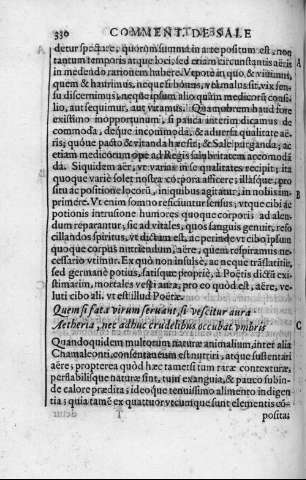 330 COMMENT. DE SALE
detur spectare, quorum summa in arte positum est, non
tantum temporis atque loci, sed etiam circunstantis aëris
in medendo rationem habere. Vt poto in quo, & viuimus,
quem & haurimus, neque si bonus, vt
su discernimus, neque ipsum alio quàm medicorū consi-
lio, aut sequimur, aut vitamus. Quamobrem haud fore
existimo inopportunum, si pauca interim dicamus de
commoda, deque incommoda, & aduersa qualitate aë-
ris; quóue pacto & vitanda hæc sit; & Sale purganda, ac
etiam medicorum ope ad Regis salubritatem accomodā
da. Siquidem aër, vt varias in se qualitates recipit; ita
quoque varie solet nostra corpora afficere; illasque, pro
situ ac positione locorū, in quibus agitur, in nobis im-
primere. Vt enim somno resiciuntur sensus; vtque cibi ac
potionis intrusione humores quoque corporis ad alen-
dum reparantur; sic ad vitales, quos sanguis genuit, reso
cillandos spiritus, vt dictam est, ac perinde vt cibo ipsum
quoque corpus nutriendum, aëre, quem respiramus ne-
cessario vtimur. Ex quò non insulsè, ac neque traslatitiè,
sed germanè potius, satisque propriè, à Poëtis dictū exi-
stimarim, mortales vesci aura, pro eo quòd est, aëre, ve-
luti cibo ali. vt est illud Poëtæ.
Quem si fata virum seruant, si vescitur aura
Aetheria, nec adhuc crudelibus occubat vmbris
Quandoquidem multorum naturæ animalium, inter alia
Chamæleonti, consentaneum est nutriri, atque sustentari
aëre; propterea quòd hæc tametsi tum raræ contexturæ,
perflabilisque naturæ sint, tum exanguia, & pauco subin-
de calore prædita; ideoque tenuissimo alimento indigen
tia; quia tamē ex quattuor vtcumque sunt elementis cō-
T posita:
A
B
C